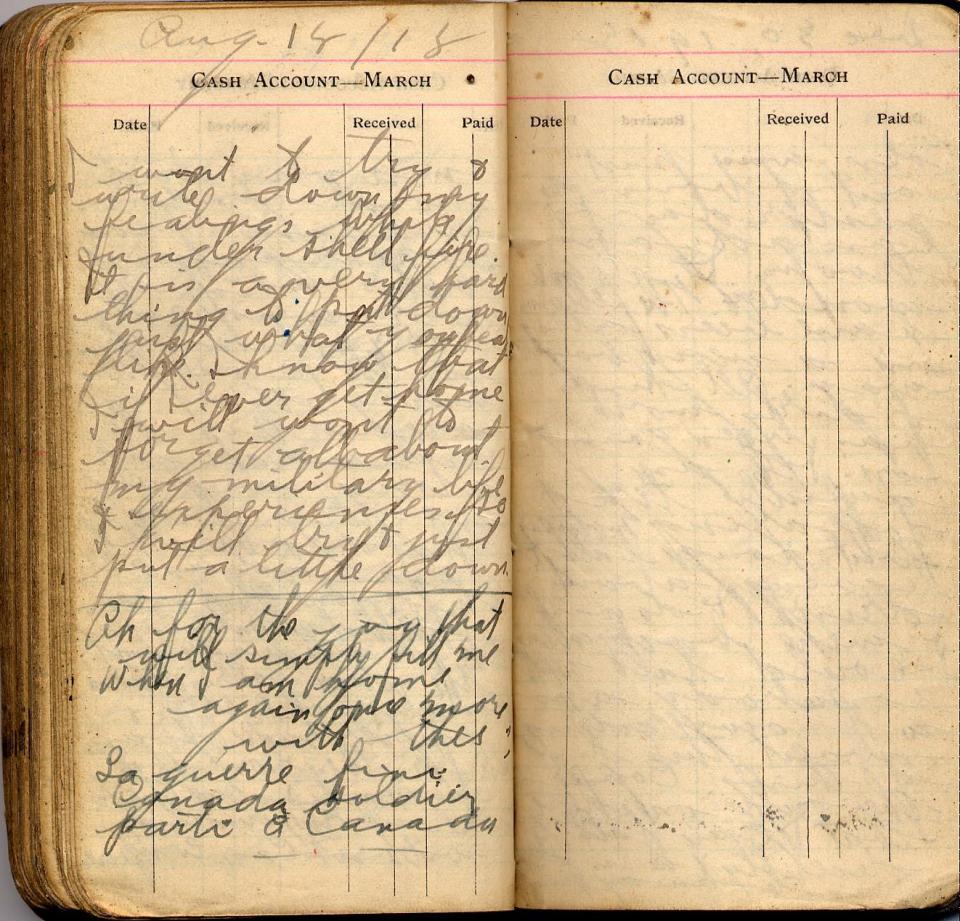 Aug. 18/18
CASH ACCOUNT—MARCH
Date Received Paid
I want to try &
write down my
fealings when
under shell fire.
It is a very hard
thing to put down
just what you feal
like. I know that
if I ever get home
I will want to
forget all about
my military life
& experiences so
I will try & just
put a little down.
Oh for the joy that
will simply fill me
When I am home
again once more
with thes
La guerre fini
Canada soldier
parti a Canada
CASH ACCOUNT—MARCH
Date Received Paid